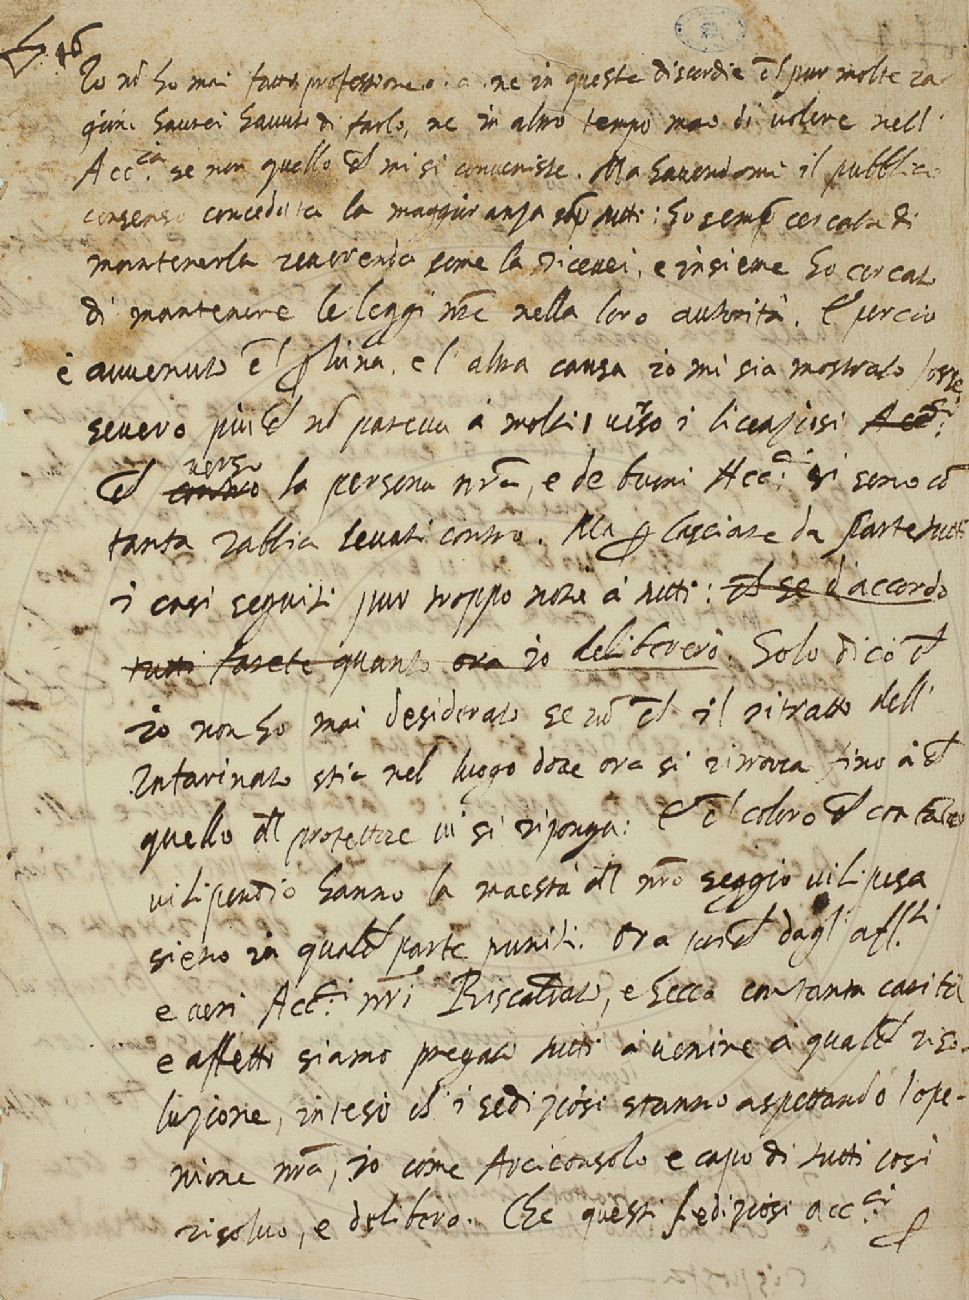 Io nō ho mai fatto professione ne in queste discordie ch' pur molte ra
gioni havrei havuto di farlo, ne in altro tempo mao di volere nell'
Acc.ia se non quello ch' mi si convenisse. Ma havendomi il pubblico
consenso conceduta la maggioranza sop̄ tutti: ho semp̄ cercato di
mantenerla reverenda come la ricevei, e insieme ho cercato
di mantenere le leggi nr̄e nella loro autorità. E perciò
è avvenuto ch' p l'una, e l'altra causa io mi sia mostrato forse
severo più ch' nō pareva à molti, verso i licenziosi Acc.ci
ch' contro verso la persona nr̄a, e de buoni Acc.ci si sono cō
tanta rabbia levati contro. Ma p lasciare da parte tutti
i casi seguiti pur troppo noti à tutti: ch' se d'accordo
tutti farete quanto ora io delibererò. Solo dico ch'
io non ho mai desiderato se nō ch' il ritratto dell'
Infarinato stia nel luogo dove ora si ritrova fino à ch'
quello dl protettore vi si riponga: E ch' coloro ch' con tanto
vilipendio hanno la maestà dl nr̄o seggio vilipesa
sieno in qualch' parte puniti. Ora poich' dagl' aff.ti
e veri Acc.ci nr̄i Riscaldato, e Secco con tanta carità
e affetto siamo pregati tutti à venire à qualch' riso-
luzione, inteso ch' i sediziosi stanno aspettando l'ope-
nione nr̄a, io come Arciconsolo e capo di tutti così
risolvo, e delibero. Che questi sediziosi Acc.ci p